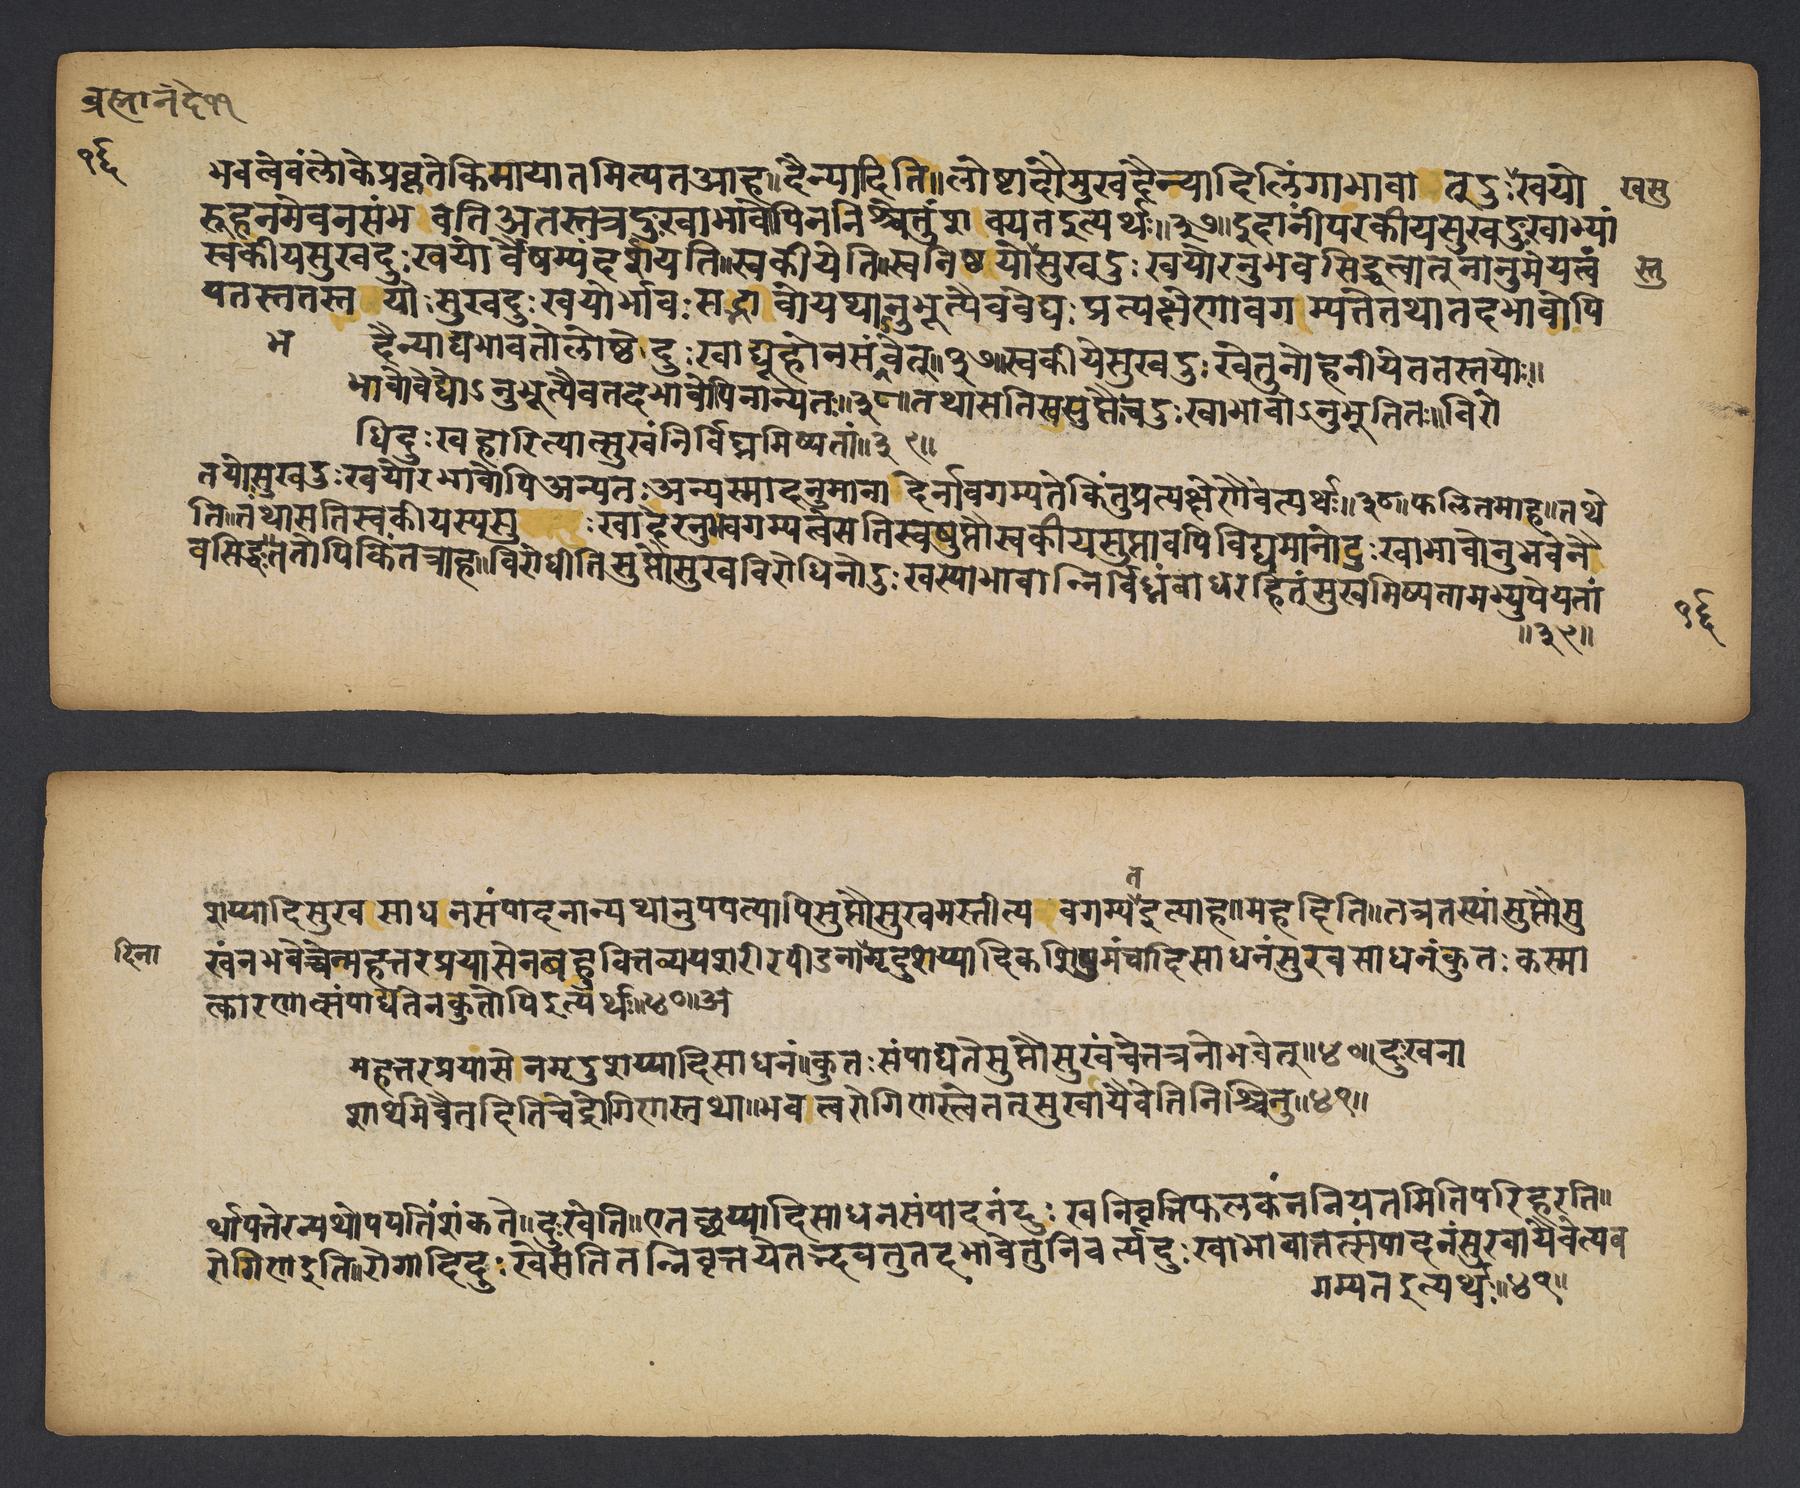 ब्रह्मानंदे११
१६
भवत्वेवंलोकेप्रकृतेकिमायातमित्यतआह॥दैन्यादिति॥लोष्टादौमुखदैन्यादिलिंगाभावा त्तद्दुःखयो
खसु
रूहनमेवनसंभ वतिअतस्तत्रदुःखाभावोपिननिश्चेतुंश क्यतइत्यर्थः॥३७॥इदानींपरकीयसुखदुःखाभ्यां
स्वकीयसुखदुःखयोर्वैषम्यंदर्शयति॥स्वकीयेति॥स्वनिष्ठयोःसुखदुःखयोरनुभवसिद्धत्वात्नानुमेयत्वं
स्तु
यतस्ततस्त योःसुखदुःखयोर्भावःसद्भा वोयथानुभूत्यैववेद्यःप्रत्यक्षेणावग म्यतेतथातदभावोपि
भ दैन्याद्यभावतोलोष्ठे दुःखाद्यूहोनसंवेत्॥३७॥स्वकीयेसुखदुःखेतुनोहनीयेततस्तयोः॥
भावोवेद्योऽनुभूत्यैवतदभावोपिनान्यतः॥३८॥तथासतिसुषुप्तौचदुःखाभावोऽनुभूतितः॥विरो
धिदुःखहारित्यात्सुखंनिर्विघ्नमिष्यतां॥३९॥
तयोःसुखदुःखयोरभावोपिअन्यतःअन्यस्मादनुमाना देर्नावगम्यतेकिंतुप्रत्यक्षेणैवेत्यर्थः॥३८॥फलितमाह॥तथे
ति॥तथासतिस्वकीयस्यसु ःखादेरनुभवगम्यत्वेसतिस्वषुप्तौस्वकीयसुप्तावपिविद्यमानोदुःखाभावोनुभवेनै
वसिद्धःततोपिकिंतत्राह॥विरोधीतिसुप्तौसुखविरोधिनोदुःखस्याभावान्निर्विघ्नंबाधरहितंसुखमिष्यतामभ्युपेयतां
॥३९॥
१६
शय्यादिसुखसाधनसंपादनान्यथानुपपत्यापिसुप्तौसुखमस्तीत्य वगम्यतइत्याह॥महदिति॥तत्रतस्यांसुप्तौसु
दिना
खंनभवेच्चेन्महत्तरप्रयासेनबहुवित्तव्ययशरीरपीडनामृदुशय्यादिकशिपुमंचादिसाधनंसुखसाधनंकुतःकस्मा
त्कारणात्संपाद्यतेनकुतोपिइत्यर्थः॥४०॥अ
महत्तरप्रयासेनमृदुशय्यादिसाधनं॥कुतःसंपाद्यतेसुप्तौसुखंचेत्तत्रनोभवेत्॥४०॥दुःखना
शार्थमेवैतदितिचेद्रोगिणस्तथा॥भवत्वरोगिणस्त्वेतत्सुखायैवेतिनिश्चिनु॥४१॥
र्थापत्तेरन्यथोपपत्तिंशंकते॥दुःखेति॥एतच्छय्यादिसाधनसंपादनंदुःखनिवृत्तिफलकंननियतमितिपरिहरति॥
रोगिणइति॥रोगादिदुःखेसतितन्निवृत्तयेतद्भवतुतदभावेतुनिवर्त्यदुःखाभावात्तत्संपादनंसुखायैवेत्यव
गम्यतइत्यर्थः॥४१॥